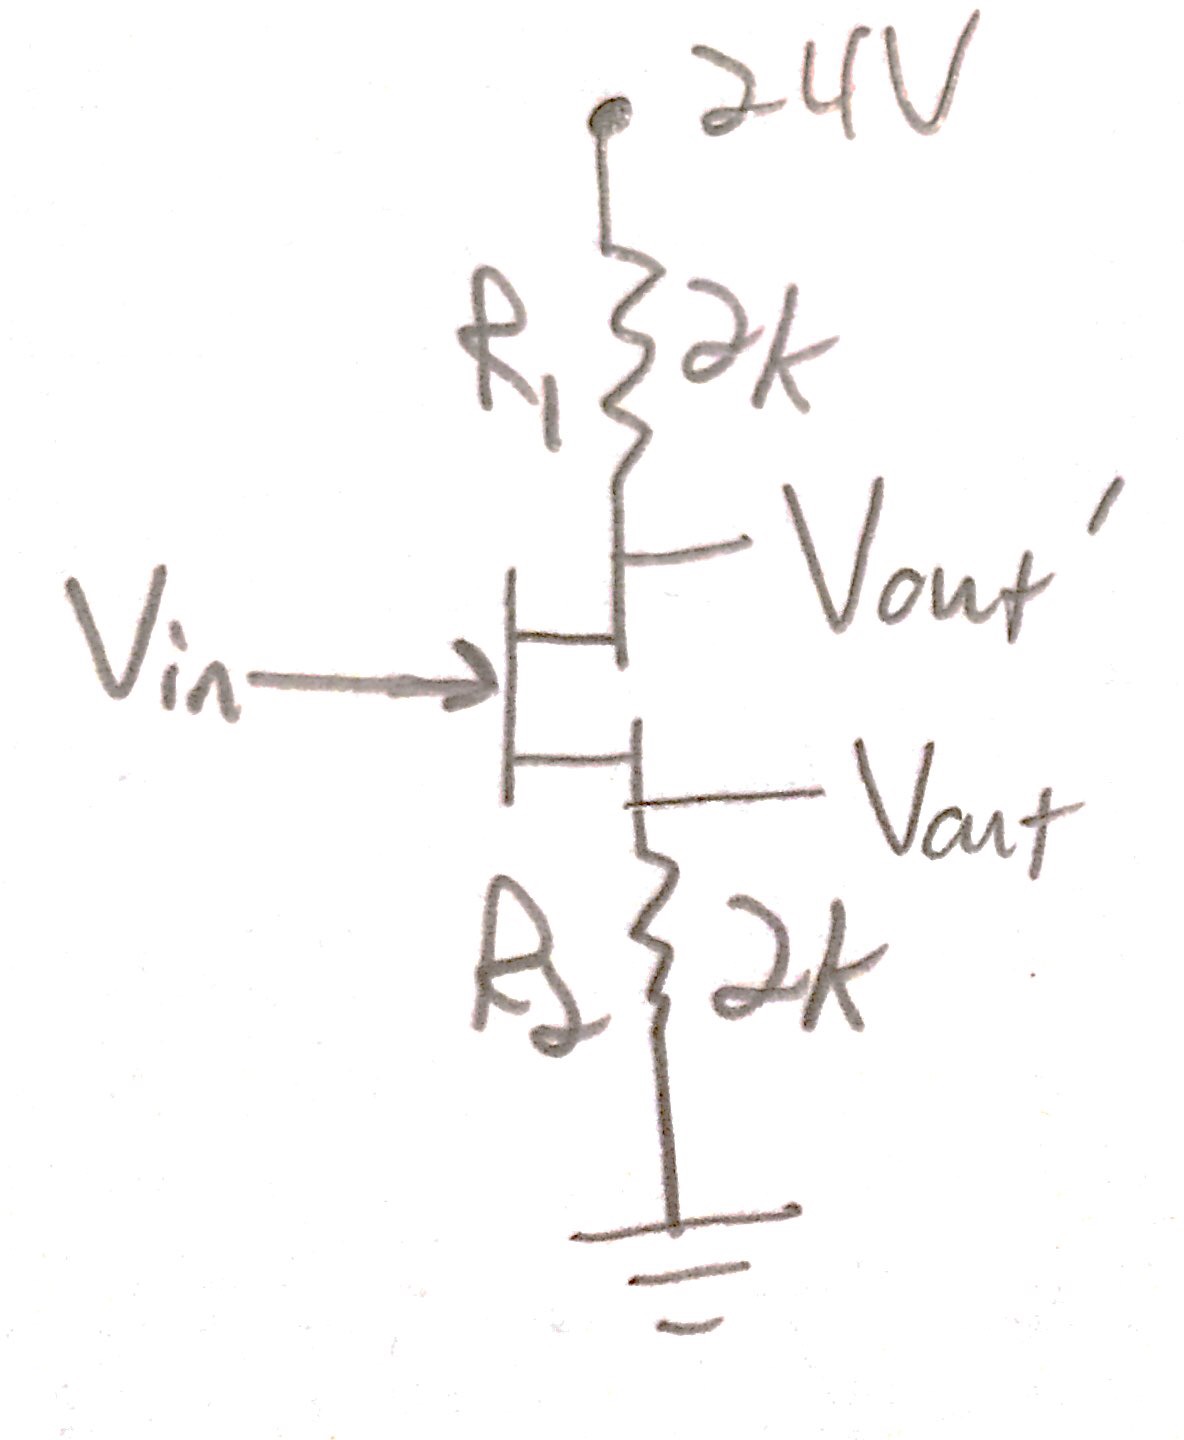 24V
R1 2k
Vout'
Vin
Vout
R2 2k